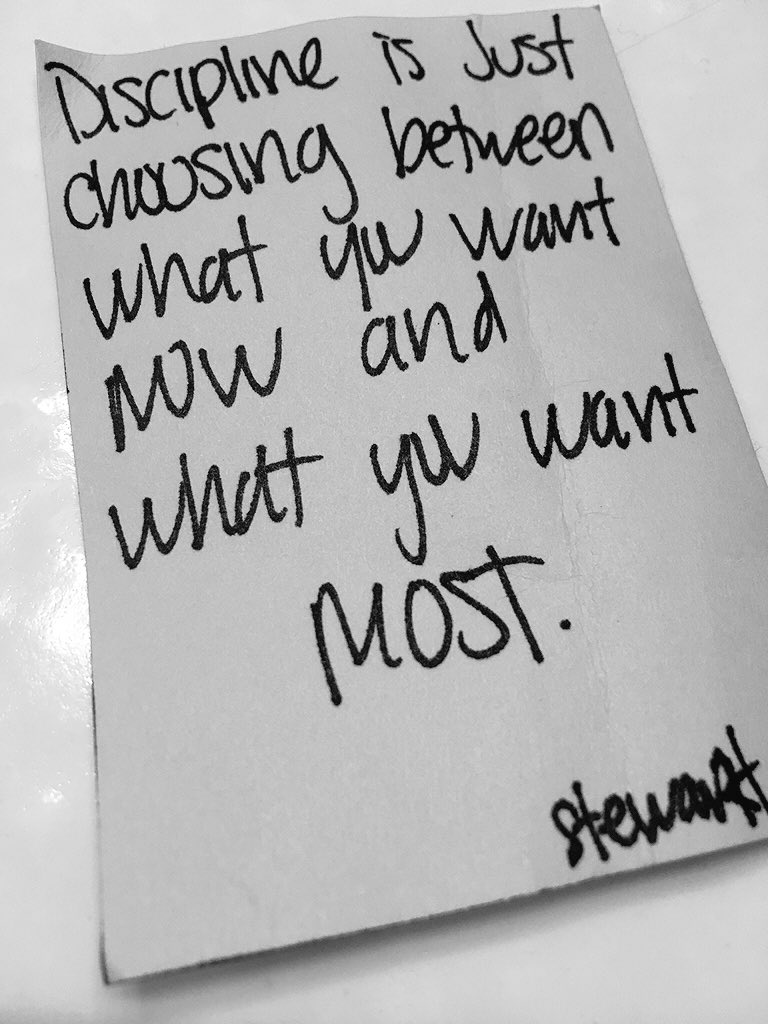 Discipline is Just
choosing between
what you want
NOW and
what you want
MOST.
stewart